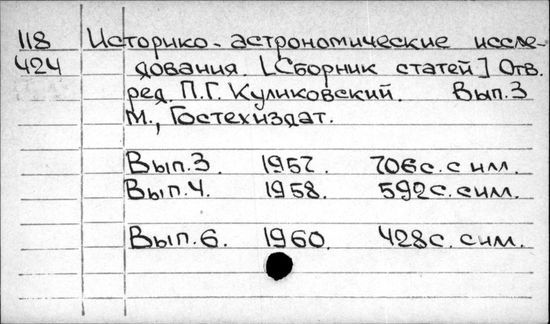 118 Историко-астрономические иссле-
424 дования. [Сборник статей] Отв.
ред. П.Г. Куликовский. Вып.3
М., Гостехиздат.
Вып.3. 1957. 706с. с илл.
Вып.4. 1958. 592с. с илл.
Вып.6. 1960. 428с. с илл.